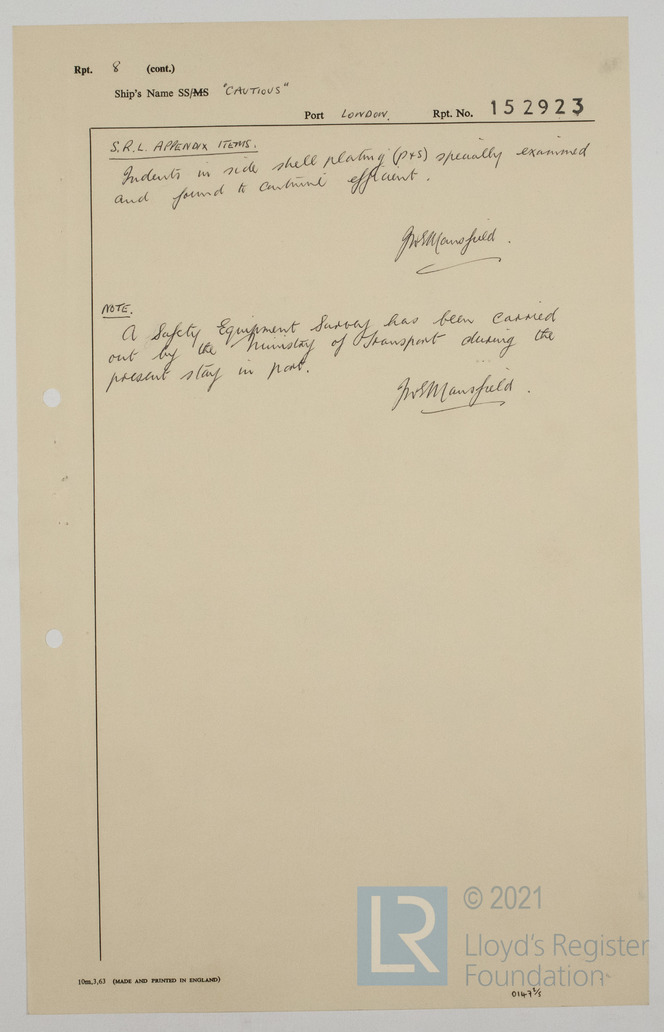 Rpt. 8 (cont.)
Ship's Name SS/MS "CAUTIOUS"
Port LONDON. Rpt. No. 152923
S.R.L. APPENDIX ITEMS.
Indents in side shell plating (P&S) specially examined
and found to continue efficient.
Mansfield.
NOTE.
A Safety Equipment Survey has been carried
out by the Ministry of Transport during the
present stay in port.
Mansfield.
10m,3,63 (MADE AND PRINTED IN ENGLAND)
LR
© 2021
Lloyd's Register
Foundation